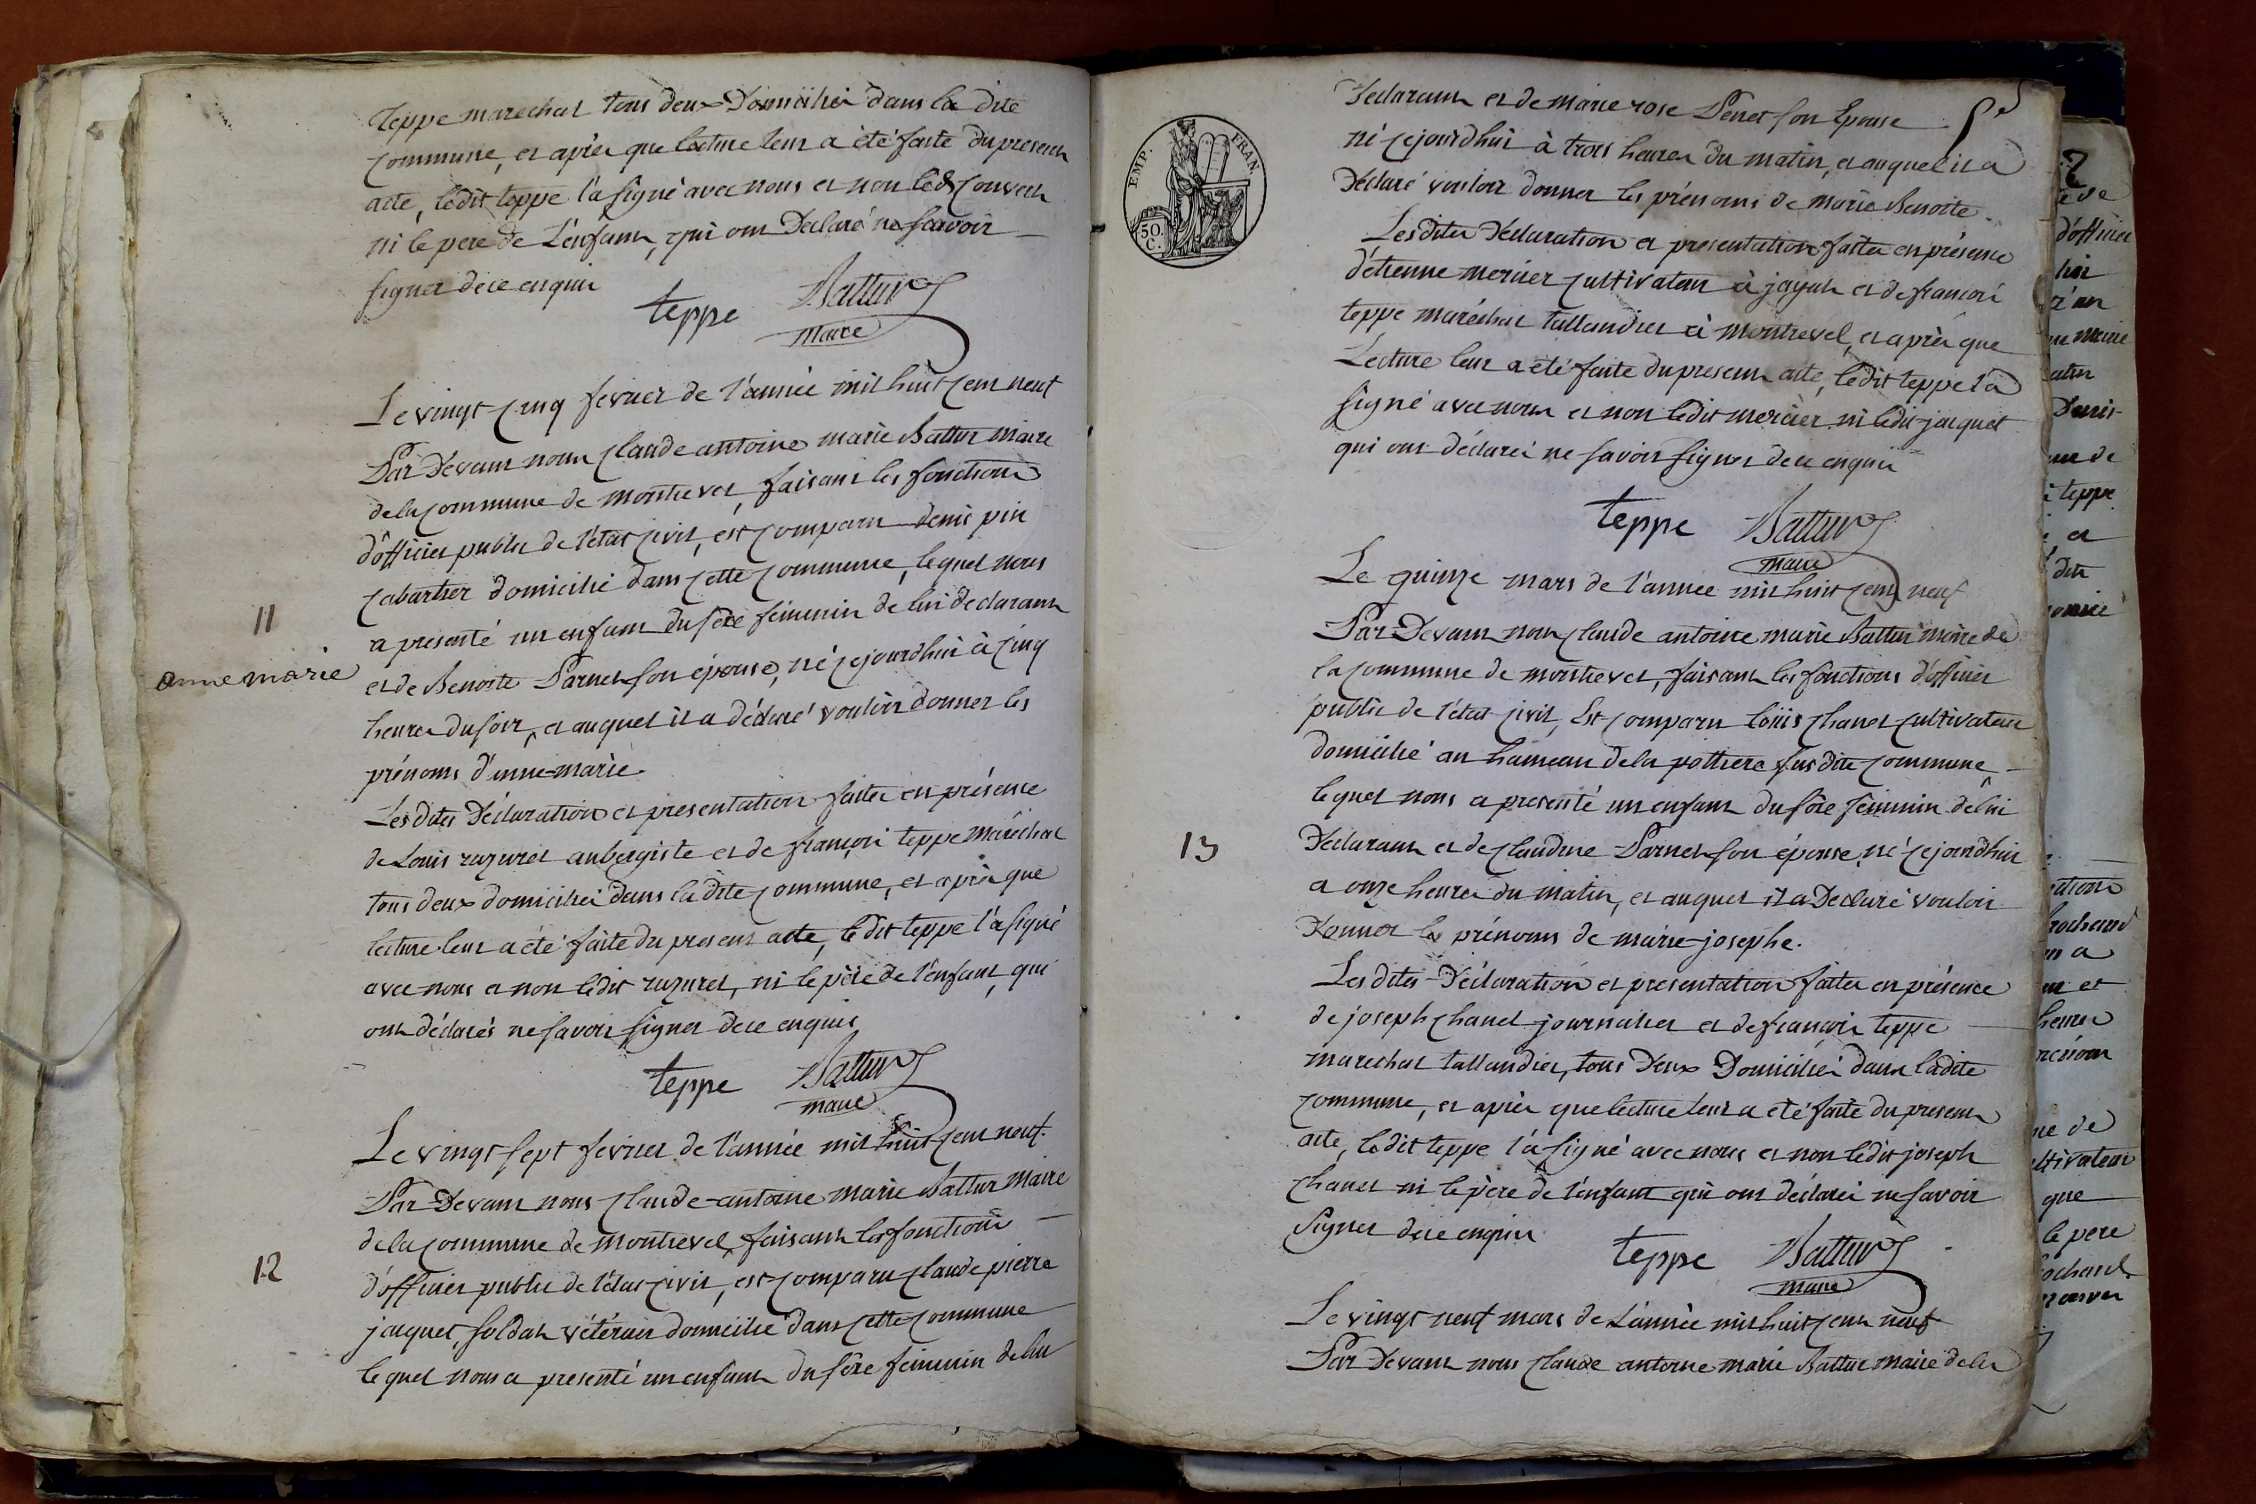 teppe marechal tous deux Domiciliés dans la dite
commune, et après que lecture leur a été faite du present
acte, ledit teppe l'a signé avec nous et non led convert
ni le pere de L'enfant, qui ont Declaré ne scavoir
signer de ce enquis
teppe Battur
maire
Le vingt cinq fevrier de l'année mil huit cent neuf
Par Devant nous claude antoine marie Battur maire
de la commune de montrevel, faisant les fonctions
d'officier public de l'état civil, est comparu denis pin
cabartier domicilié dans cette commune, lequel nous
a presenté un enfant du sexe féminin de lui declarant
11
anne marie
et de Benoite Parnet son épouse, né cejourdhui à cinq
heures du soir, et auquel il a déclaré vouloir donner les
prénoms d'anne-marie.
Les dites Déclaration et presentation faites en présence
de Louis razurel aubergiste et de françois teppe maréchal
tous deux domiciliés dans la dite commune, et après que
lecture leur a été faite du present acte, le dit teppe l'a signé
avec nous et non ledit razurel, ni le père de l'enfant, qui
ont déclarés ne savoir signer de ce enquis
teppe Battur
maire
Le vingt sept fevrier de l'année mil huit cent neuf.
Par Devant nous claude-antoine marie Battur maire
de la commune de montrevel, faisant les fonctions
12
d'officier public de l'état civil, est comparu claude pierre
jacquet, soldat vétéran domicilié dans cette commune
lequel nous a presenté un enfant du sexe féminin de lui
EMP. FRAN.
50. C.
Declarant et de marie rose Penet son Epouse
né cejourdhui à trois heures du matin, et auquel il a
Déclaré vouloir donner les prénoms de marie Benoite.
Les dites Déclaration et presentation faites en présence
d'étienne mercier cultivateur à jayat et de françois
teppe maréchal tallandier à montrevel, et après que
Lecture leur a été faite du present acte, ledit teppe l'a
signé avec nous et non ledit mercier ni ledit jacquet
qui ont déclarés ne savoir signer de ce enquis
teppe Battur
maire
Le quinze mars de l'année mil huit cent neuf
Par Devant nous claude antoine marie Battur maire de
la commune de montrevel, faisant les fonctions d'officier
public de l'état civil, Est comparu loüis chanel cultivateur
domicilié au hameau de la pottiere susdite commune,
lequel nous a presenté un enfant du sexe féminin de lui
13
Declarant et de claudine Parnet son épouse, né cejourdhui
a onze heures du matin, et auquel il a Declaré vouloir
Donner les prénoms de marie-josephe.
Les dites Déclaration et presentation faites en présence
de joseph chanel journalier et de françois teppe
marechal tallandier, tous Deux Domiciliés dans ladite
commune, et après que lecture leur a été faite du present
acte, ledit teppe l'a signé avec nous et non ledit joseph
chanel ni le père de l'enfant qui ont déclarés ne savoir
signer de ce enquis
teppe Battur
maire
Le vingt neuf mars de L'année mil huit cent neuf
Par Devant nous claude antoine marie Battur maire de la